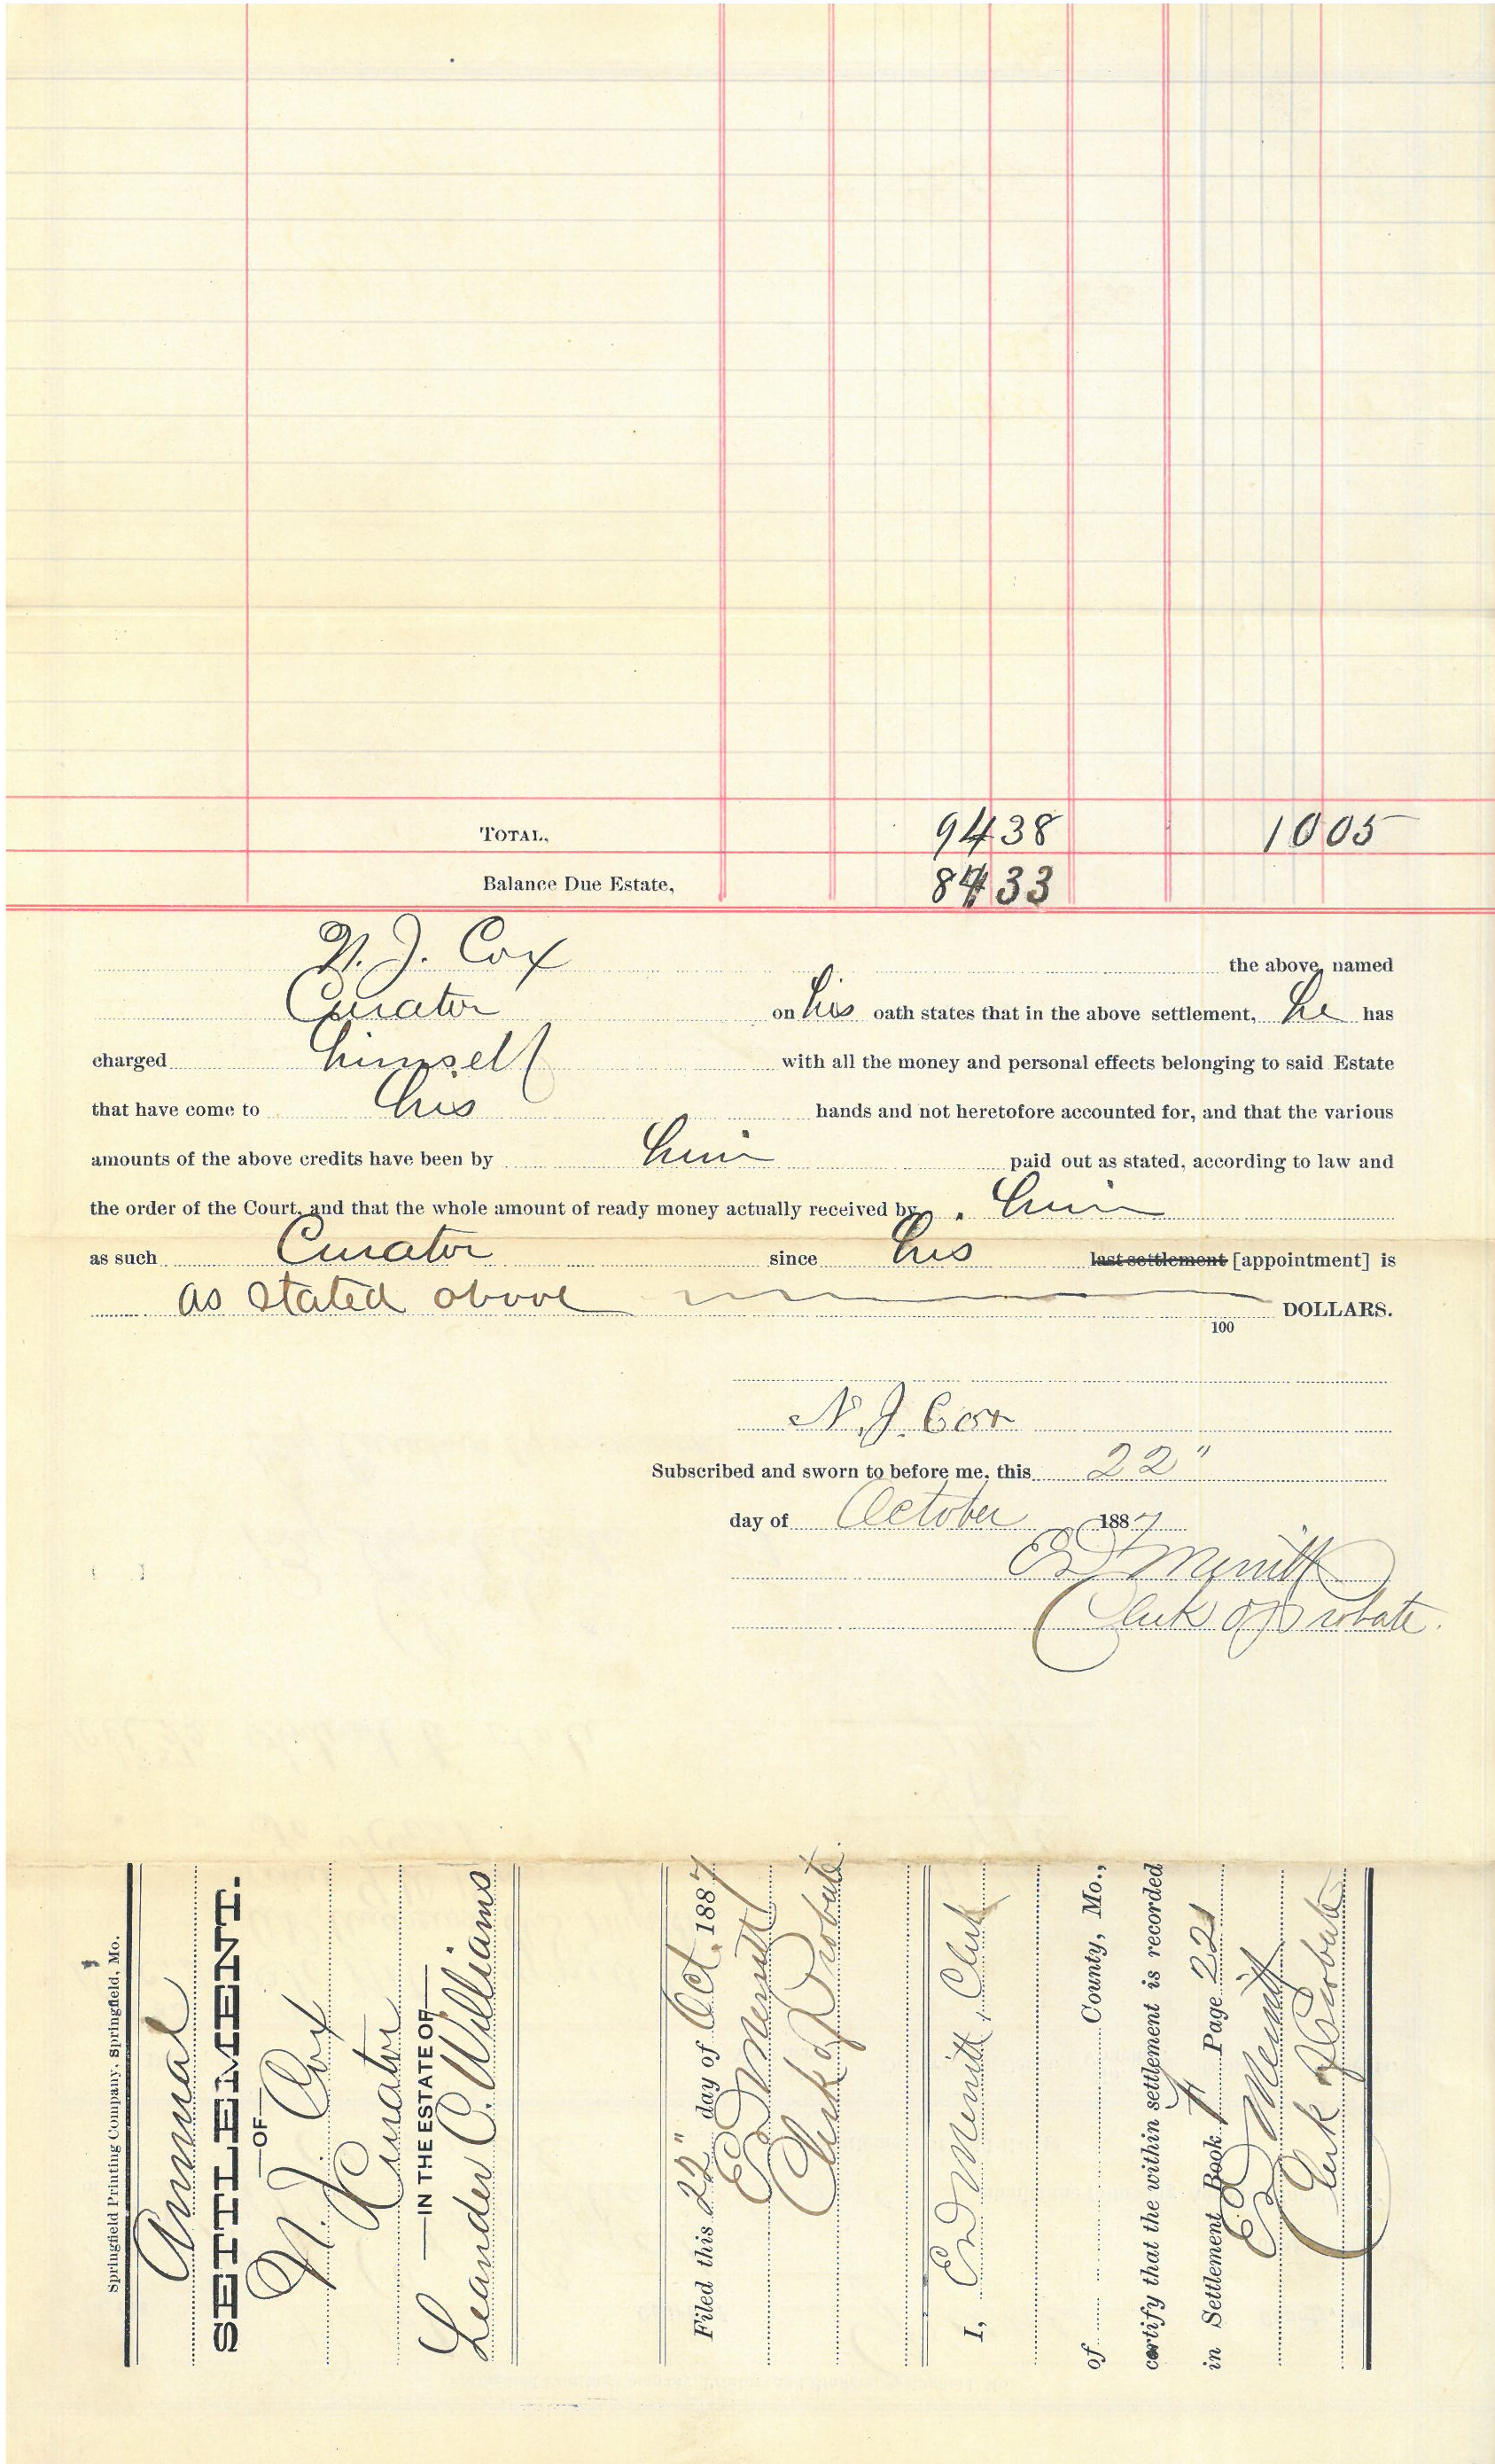 TOTAL, 94 38 10 05
Balance Due Estate, 84 33
N. J. Cox the above named
Curator on his oath states that in the above settlement, he has
charged himself with all the money and personal effects belonging to said Estate
that have come to his hands and not heretofore accounted for, and that the various
amounts of the above credits have been by him paid out as stated, according to law and
the order of the Court, and that the whole amount of ready money actually received by him
as such Curator since his last settlement [appointment] is
as stated above DOLLARS.
100
N. J. Cox
Subscribed and sworn to before me, this 22"
day of October 1887
ED Merritt
Clerk of Probate.
Springfield Printing Company, Springfield, Mo.
Annual
SETTLEMENT.
—OF—
N. J. Cox
Curator
—IN THE ESTATE OF—
Leander C. Williams
Filed this 22" day of Oct. 1887
ED Merritt
Clerk of Probate
I, ED Merritt, Clerk
of County, Mo.,
certify that the within settlement is recorded
in Settlement Book Page 221
ED Merritt
Clerk of Probate